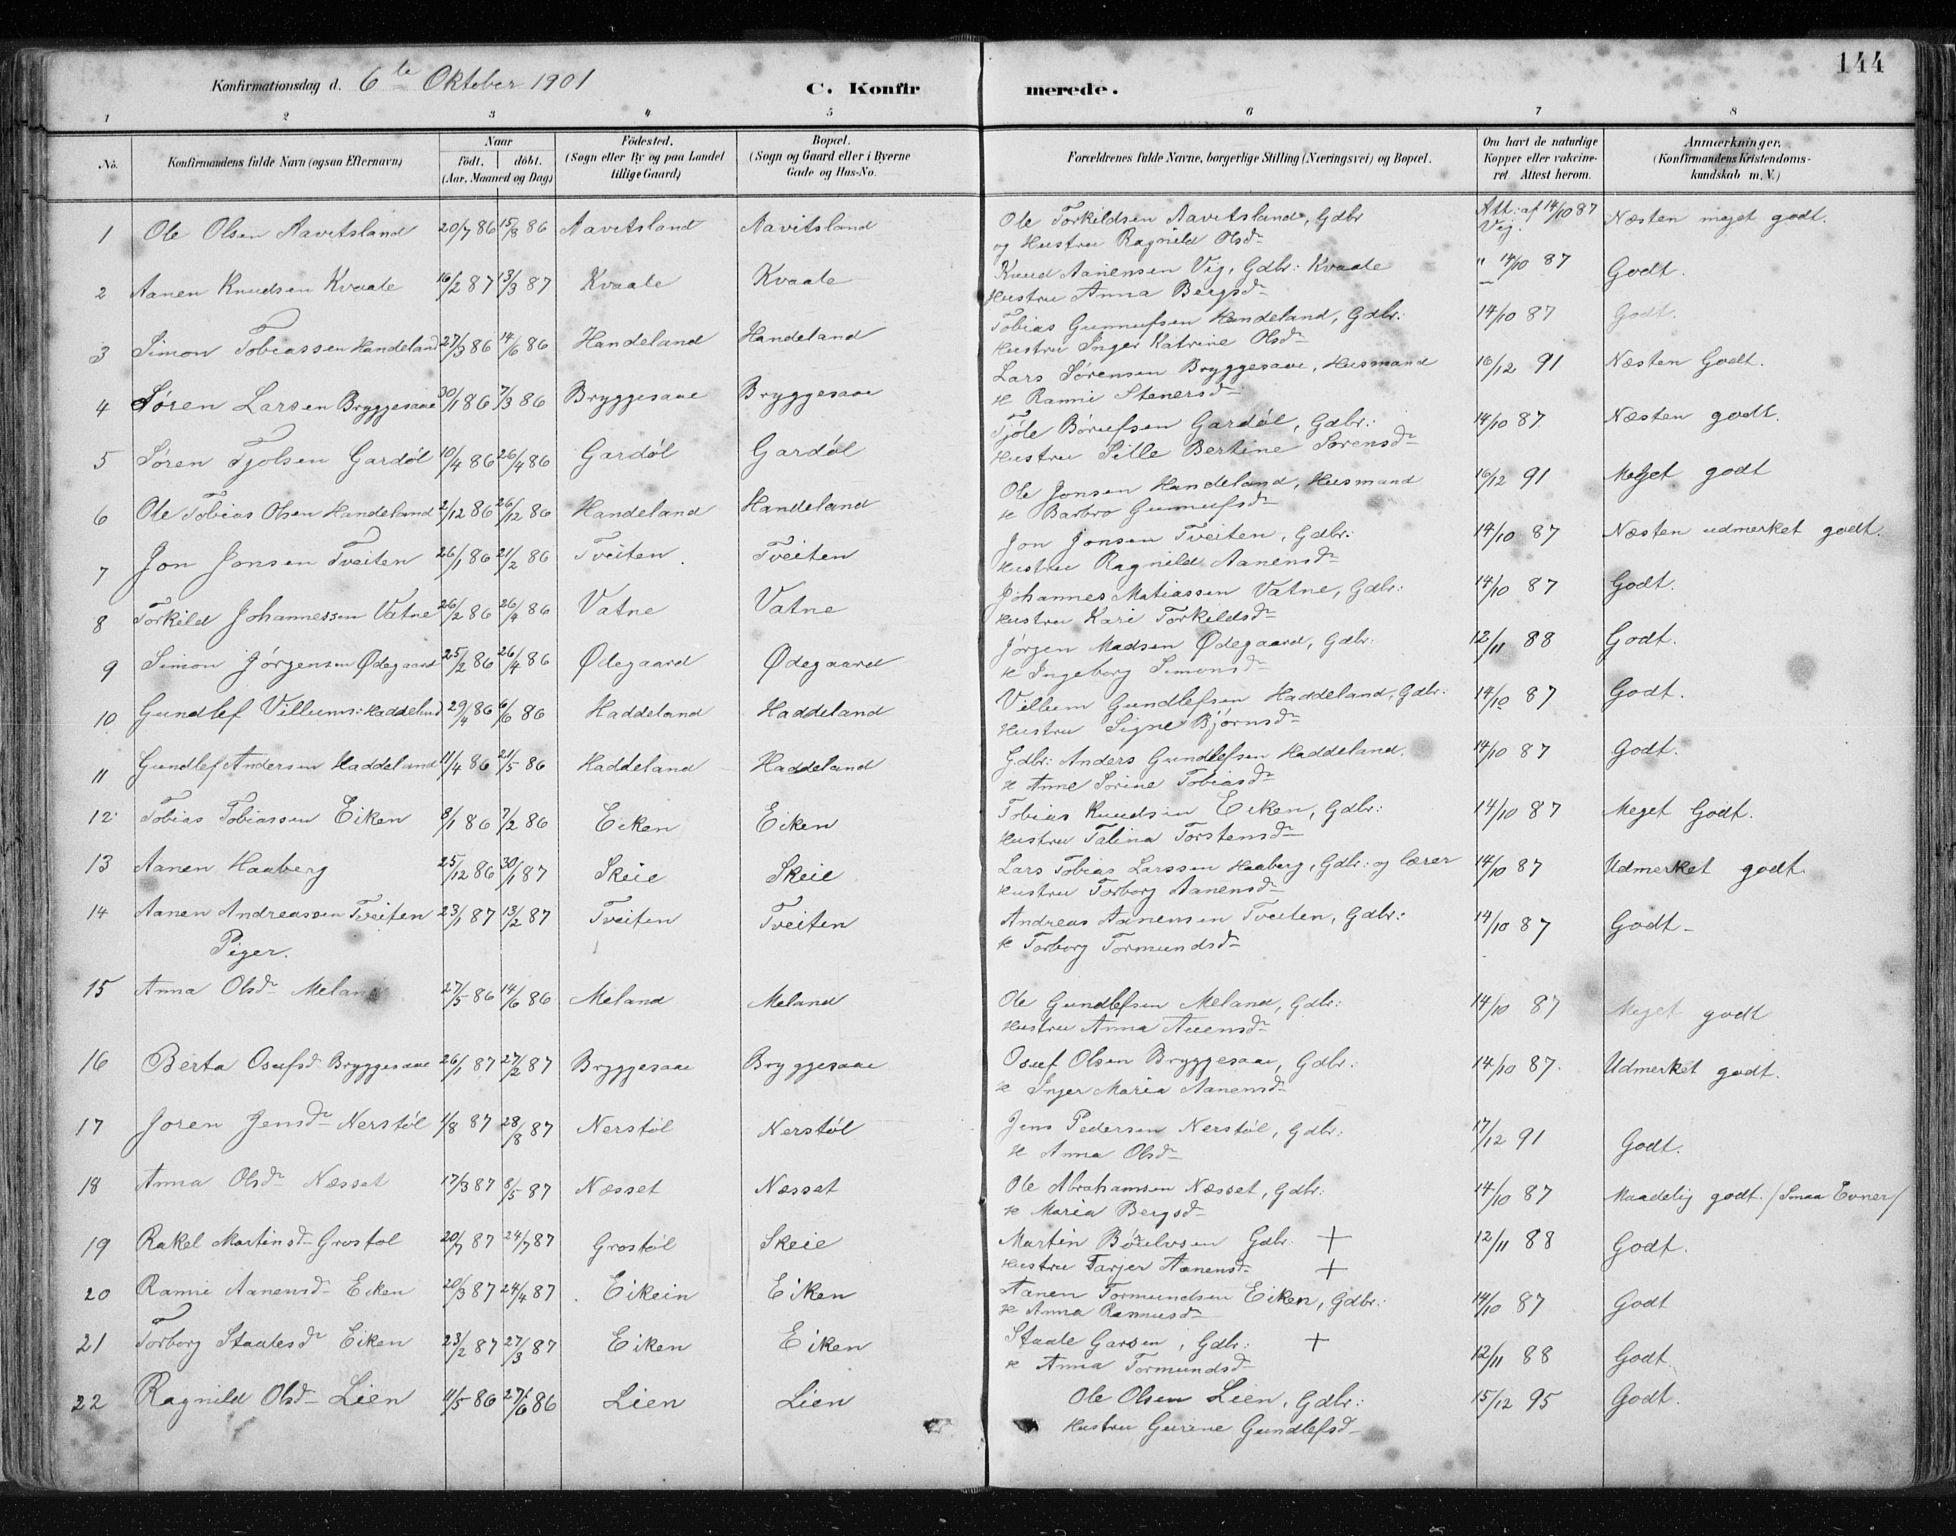 144
Konfirmationsdag d. 6te Oktober 1901 C. Konfirmerede.
1 2 3 4 5 6 7 8
No. Konfirmandens fulde Navn (ogsaa Efternavn) Naar födt, döbt. (Aar, Maaned og Dag) Födested. (Sogn eller By og paa Landet tillige Gaard) Bopæl. (Sogn og Gaard eller i Byerne Gade og Hus-No. Forældrenes fulde Navne, borgerlige Stilling (Næringsvei) og Bopæl. Om havt de naturlige Kopper eller vakcineret. Attest herom. Anmærkninger. (Konfirmandens Kristendomskundskab m. V.)
1 Ole Olsen Aavitsland 20/7 86 15/8 86 Aavitsland Aavitsland Ole Torkildsen Aavitsland, Gdbr Att: af 14/10 87 Næsten meget godt.
og Hustru Ragnild Olsdr Vig.
2 Aanen Knudsen Kvaale 16/2 87 13/3 87 Kvaale Kvaale Knud Aanensen Vig, Gdbr: Kvaale " 14/10 87 Godt.
Hustru Anna Bergsdr
3 Simon Tobiassen Handeland 27/3 86 14/6 86 Handeland Handeland Tobias Gunnufsen Handeland, Gdbr: 14/10 87 Godt.
Hustru Inger Katrine Olsdr
4 Søren Larsen Bryggesaae 30/1 86 7/3 86 Bryggesaae Bryggesaae Lars Sørensen Bryggesaae, Husmand 16/12 91 Næsten Godt.
H Rannie Stenersdr
5 Søren Tjølsen Gardøl 10/4 86 26/4 86 Gardøl Gardøl Tjøle Børufsen Gardøl, Gdbr: 14/10 87. Næsten godt.
Hustru Sille Bertine Sørensdr
6 Ole Tobias Olsen Handeland 2/12 86 26/12 86 Handeland Handeland Ole Jonsen Handeland, Husmand 16/12 91 Meget godt
H Barbro Gunnufsdr
7 Jon Jonsen Tveiten 26/1 86 21/2 86 Tveiten Tveiten Jon Jonsen Tveiten, Gdbr: 14/10 87 Næsten udmerket godt.
Hustru Ragnild Aanensdr
8 Torkild Johannessen Vatne 26/2 86 26/4 86 Vatne Vatne Johannes Matiassen Vatne, Gdbr: 14/10 87 Godt.
Hustru Kari Torkildsdr
9 Simon Jørgensen Ødegaard 25/2 86 26/4 86 Ødegaard Ødegaard Jørgen Madsen Ødegaard, Gdbr: 12/11 88 Godt.
H Ingeborg Simonsdr
10 Gundlef Villums: Haddeland 29/4 86 6/6 86 Haddeland Haddeland Villum Gundlefsen Haddeland, Gdbr: 14/10 87 Godt.
Hustru Signe Bjørnsdr
11 Gundlef Andersen Haddeland 11/4 86 21/5 86 Haddeland Haddeland Gdbr: Anders Gundlefsen Haddeland. 14/10 87 Godt.
H Anne Sorine Tobiasdr
12 Tobias Tobiassen Eiken 8/1 86 7/2 86 Eiken Eiken Tobias Knudsen Eiken, Gdbr: 14/10 87 Meget Godt.
Hustru Talina Torstensdr
13 Aanen Haaberg 25/12 86 30/1 87 Skeie Skeie Lars Tobias Larssen Haaberg, Gdbr: og Lærer 14/10 87 Udmerket godt.
Hustru Torborg Aanensdr
14 Aanen Andreassen Tveiten 23/1 87 13/2 87 Tveiten Tveiten Andreas Aanensen Tveiten, Gdbr: 14/10 87 Godt
H Torborg Tormundsdr
Piger.
15 Anna Olsdr Meland 27/5 86 14/6 86 Meland Meland Ole Gundlefsen Meland, Gdbr: 14/10 87 Meget godt
Hustru Anna Auensdr
16 Berta Osufsdr Bryggesaae 26/1 87 27/2 87 Bryggesaae Bryggesaae Osuf Olsen Bryggesaae, Gdbr: 14/10 87. Udmerket godt.
H Inger Maria Aanensdr
17 Joren Jensdr Nerstøl 1/8 87 28/8 87 Nerstøl Nerstøl Jens Pedersen Nerstøl, Gdbr: 17/12 91 Godt.
H Anna Olsdr
18 Anna Olsdr Næsset 17/3 87 8/5 87 Næsset Næsset Ole Abrahamsen Næsset, Gdbr: 14/10 87 Maadelig godt. /Smaa Evner/
H Maria Bergsdr
19 Rakel Martinsdr Grostøl 20/7 87 24/7 87 Grostøl Skeie Martin Gdbr. + 12/11 88 Godt.
Hustru Tarjer Aanensdr +
20 Rannie Aanensdr Eiken 20/3 87 24/4 87 Eikein Eiken Aanen Tormundsen Eiken, Gdbr: 14/10 87 Godt
H Anna Rasmusdr
21 Torborg Staalesdr Eiken 23/2 87 27/3 87 Eiken Eiken Staale Garsen, Gdbr: + 12/11 88 Godt.
H Anna Tormundsdr
22 Ragnild Olsdr Lien 11/5 86 27/6 86 Lien Lien Ole Olsen Lien, Gdbr: 15/12 95 Godt.
Hustru Gurine Gundlefsdr